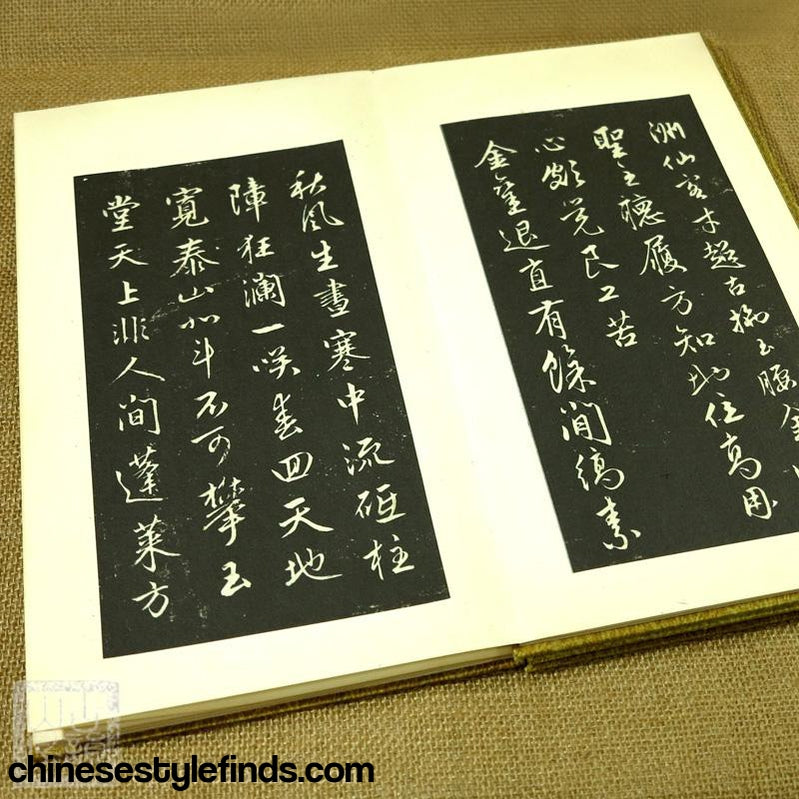 洲仙客才超古玉腰金
聖主聽履方知地位高用
心頗覺良工苦
金鑾退直有餘閒縞素
秋風生晝寒中流砥柱
障狂瀾一咲春回天地
寬泰山北斗不可攀玉
堂天上非人間蓬萊方
chinesestylefinds.com